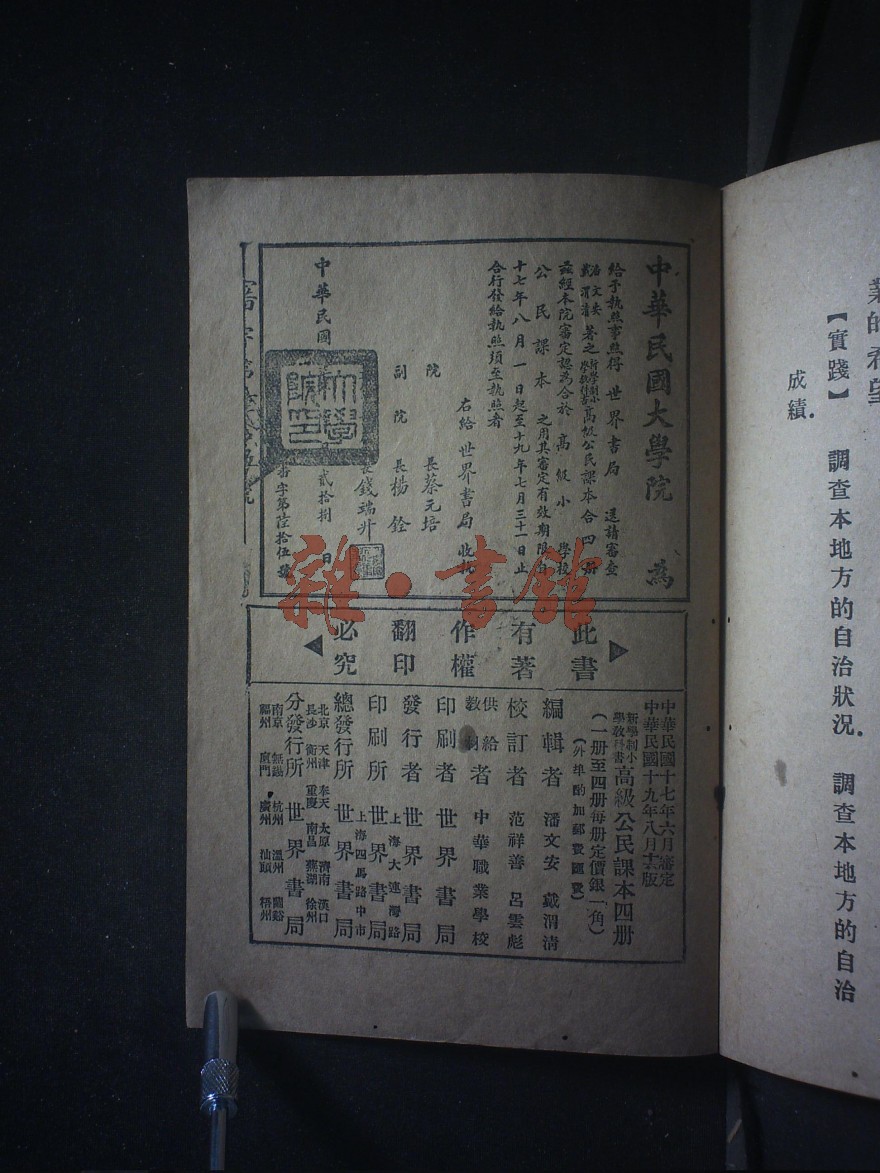 業的希望
【實踐】 調查本地方的自治狀況. 調查本地方的自治
成績.
中華民國大學院 為
給予執照事照得 世界書局 送請審查
潘文安
戴渭清 著之 新學制小學教科書 高級公民課本 合四冊
茲經本院審定認為合於 高級小 學校
公民課本 之用其審定有效期限自
十七年八月一日起至十九年七月三十一日止
合行發給執照須至執照者
右給世界書局收執
院 長蔡元培
副院 長楊銓
長錢端升
中華民國 貳拾捌 日
字第陸拾伍號
大學院印
此書有著作權翻印必究
中華民國十七年六月審定
中華民國十九年八月十二版
新學制小學教科書 高級公民課本四冊
(一册至四册每册定價銀一角)
(外埠酌加郵費匯費)
編輯者 潘文安 戴渭清
校訂者 范祥善 呂雲彪
供給教材者 中華職業學校
印刷者 世界書局
發行者 上海大連灣路 世界書局
印刷所 世界書局
總發行所 上海四馬路中市 世界書局
分發行所 世界書局
北京 天津 奉天 太原 濟南 漢口
長沙 衡州 重慶 南昌 蕪湖 徐州
南京 無錫 杭州 溫州 蘭谿
福州 廈門 廣州 汕頭 梧州
雜·書館